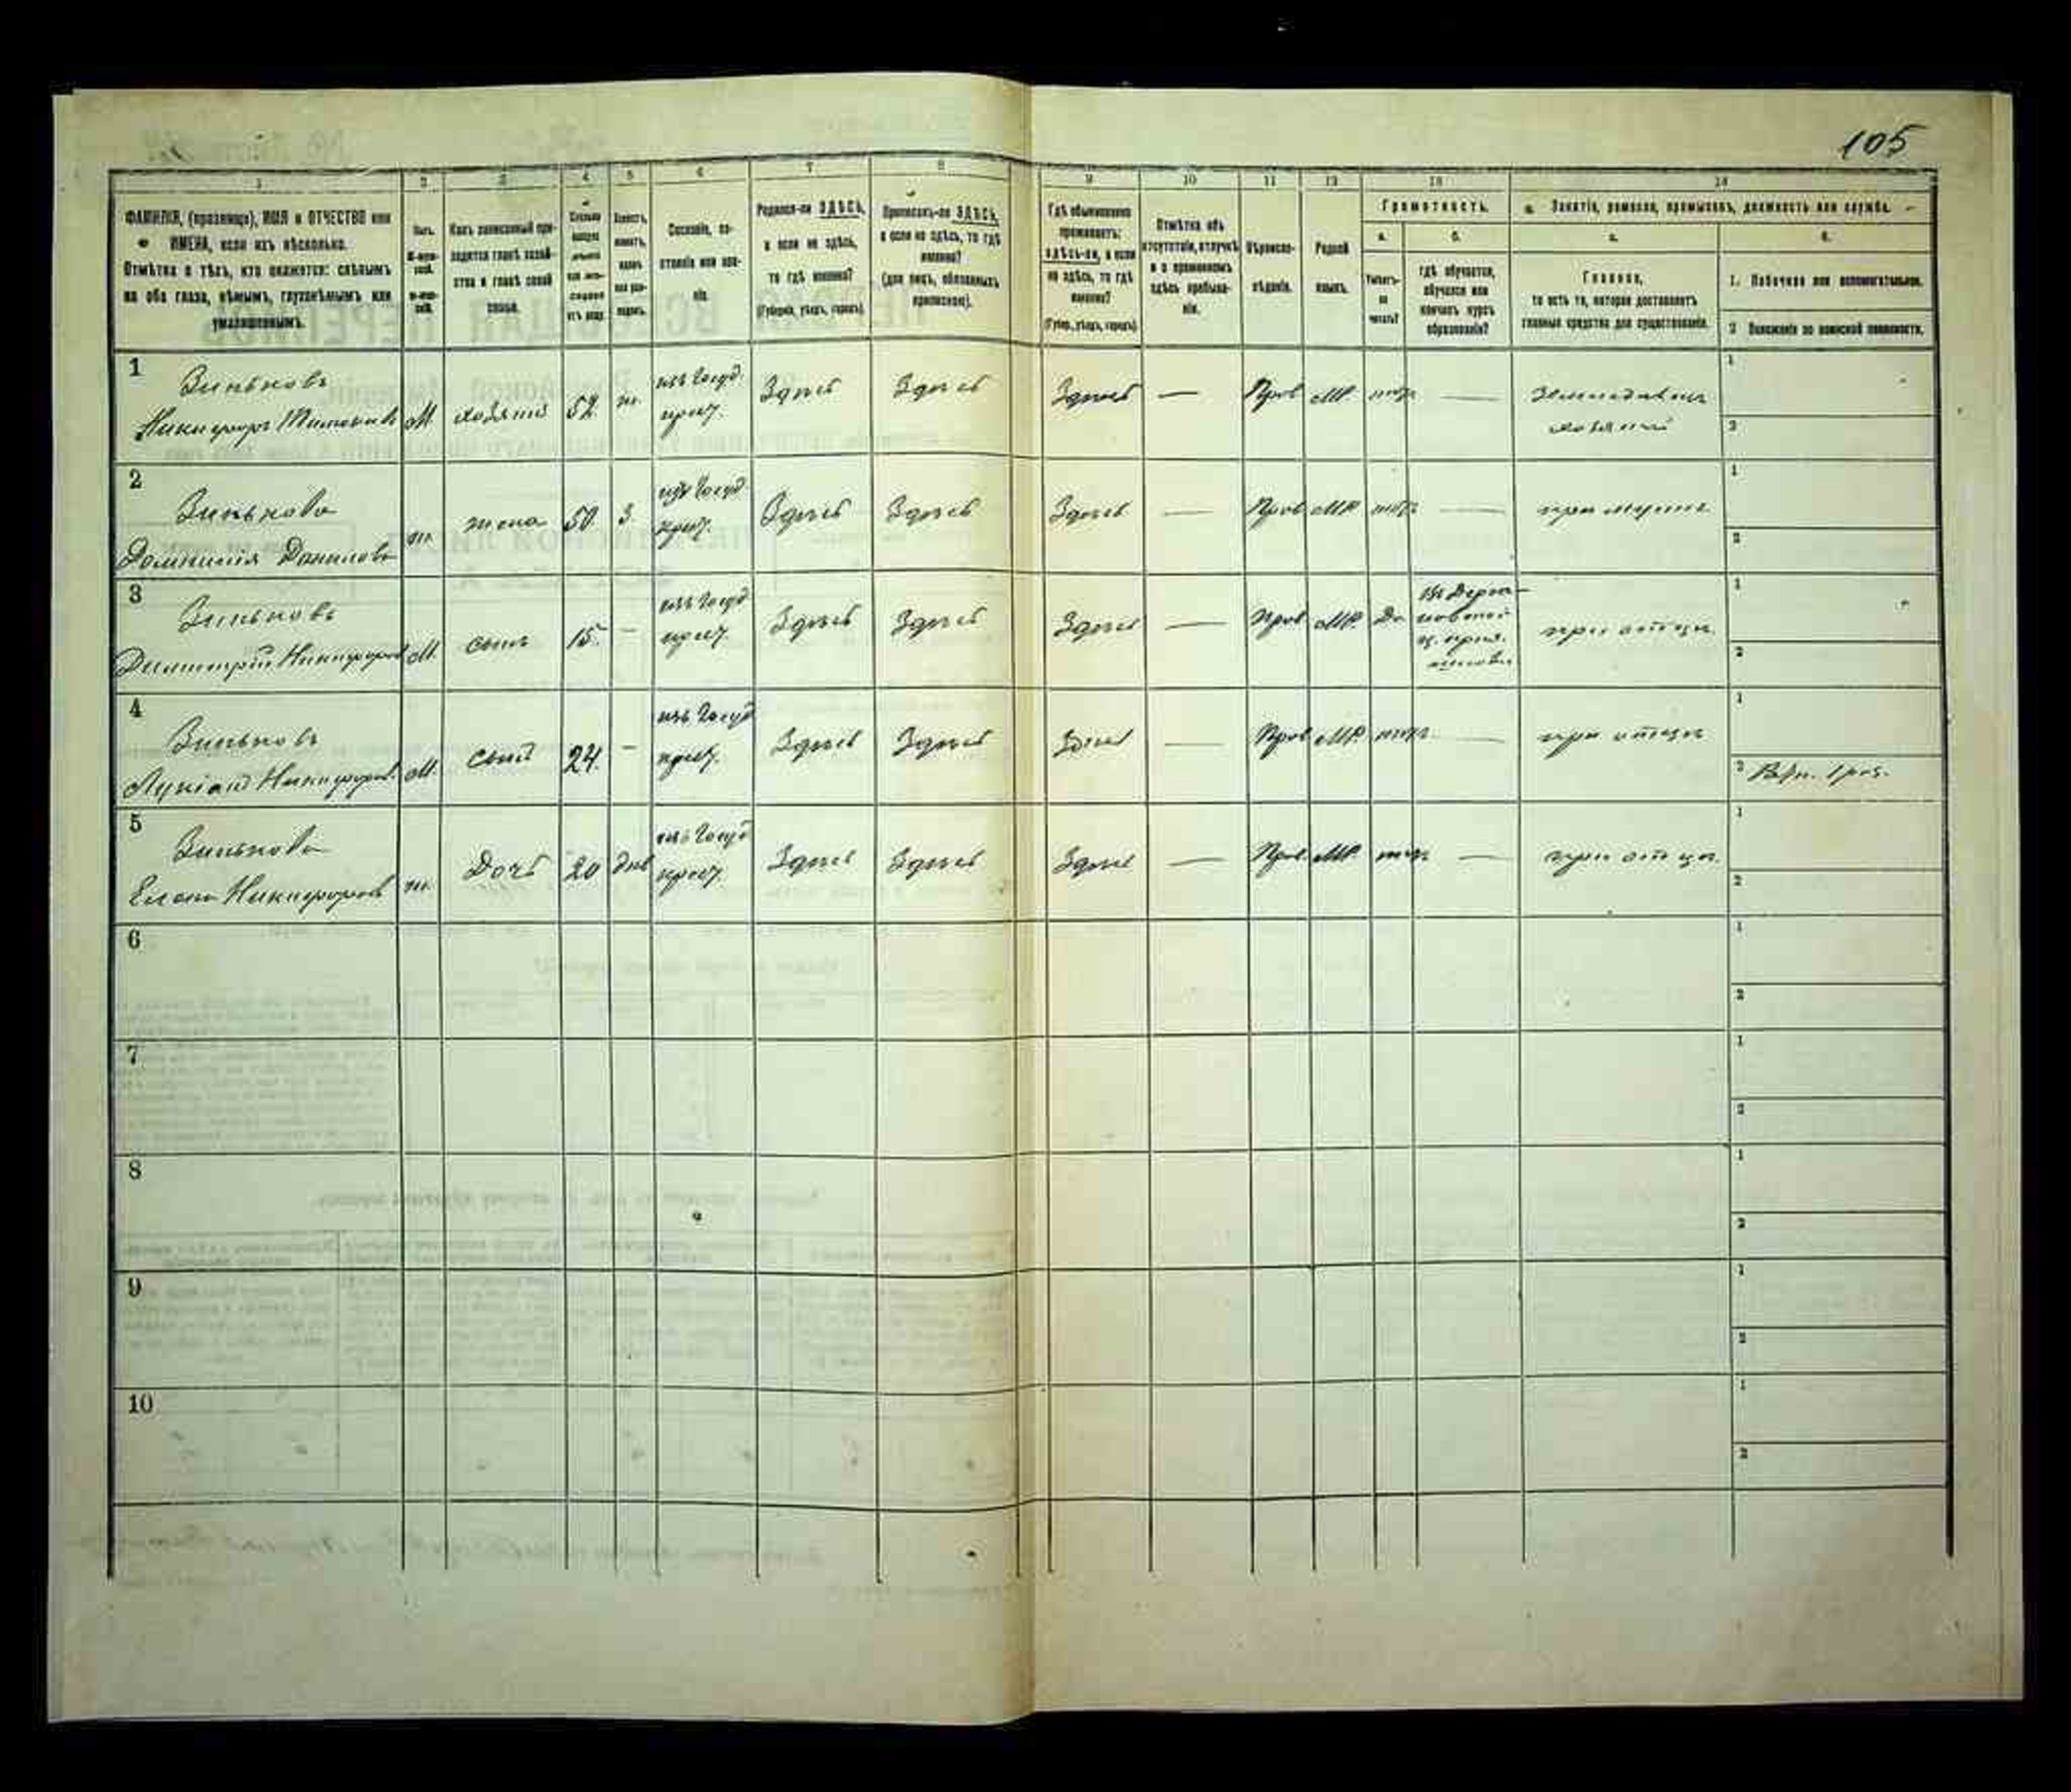 105
1 2 3 4 5 6 7 8 9 10 11 12 13 14
ФАМИЛІЯ, (прозвище), ИМЯ и ОТЧЕСТВО или
ИМЕНА, если ихъ нѣсколько.
Отмѣтка о тѣхъ, кто окажется: слѣпымъ
на оба глаза, нѣмымъ, глухонѣмымъ или
умалишеннымъ.
Полъ.
М-муж-
ской.
ж-жен-
скій.
Какъ записанный при-
ходится главѣ хозяй-
ства и главѣ своей
семьи.
Сколько
минуло
лѣтъ
или мѣся-
цевъ
отъ роду.
Холостъ,
женатъ,
вдовъ
или раз-
веденъ.
Сословіе, со-
стояніе или зва-
ніе.
Родился-ли ЗДѢСЬ,
а если не здѣсь,
то гдѣ именно?
(Губернія, уѣздъ, городъ).
Приписанъ-ли ЗДѢСЬ,
а если не здѣсь, то гдѣ
именно?
(для лицъ, обязанныхъ
припискою).
Гдѣ обыкновенно
проживаетъ:
здѣсь-ли, а если
не здѣсь, то гдѣ
именно?
(Губер., уѣздъ, городъ).
Отмѣтка объ
отсутствіи, отлучкѣ
и о временномъ
здѣсь пребыва-
ніи.
Вѣроиспо-
вѣданіе.
Родной
языкъ.
Грамотность.
а.
Умѣетъ-
ли
читать?
б.
гдѣ обучается,
обучался или
кончилъ курсъ
образованія?
Занятіе, ремесло, промыселъ, должность или служба.
а.
Главное,
то есть то, которое доставляетъ
главныя средства для существованія.
б.
1. Побочное или вспомогательное.
2 Положеніе по воинской повинности.
1
Зиньковъ
Никифоръ М. хозяинъ 52. ж. изъ Госуд. крест. Здѣсь Здѣсь Здѣсь — Прав МР нѣтъ — Земледѣлецъ
хозяинъ
1
2
2
Зинькова
Домникія Данилова ж. жена 50. З. изъ Госуд. крест. Здѣсь Здѣсь Здѣсь — Прав МР нѣтъ — при мужѣ
1
2
3
Зиньковъ
Димитрій Никифоров М. сынъ 15. — изъ Госуд крест. Здѣсь Здѣсь Здѣсь — Прав МР. Да при отцѣ.
1
2
4
Зиньковъ
Лукіанъ Никифоров. М. сынъ 24. — изъ Госуд крест. Здѣсь Здѣсь Здѣсь — Прав МР. нѣтъ — при отцѣ
1
2
5
Зинькова
Елена Никифоров ж. Дочь 20 Дѣв изъ Госуд крест. Здѣсь Здѣсь Здѣсь — Прав. МР. нѣтъ — при отцѣ.
1
2
6
1
2
7
1
2
8
1
2
9
1
2
10
1
2